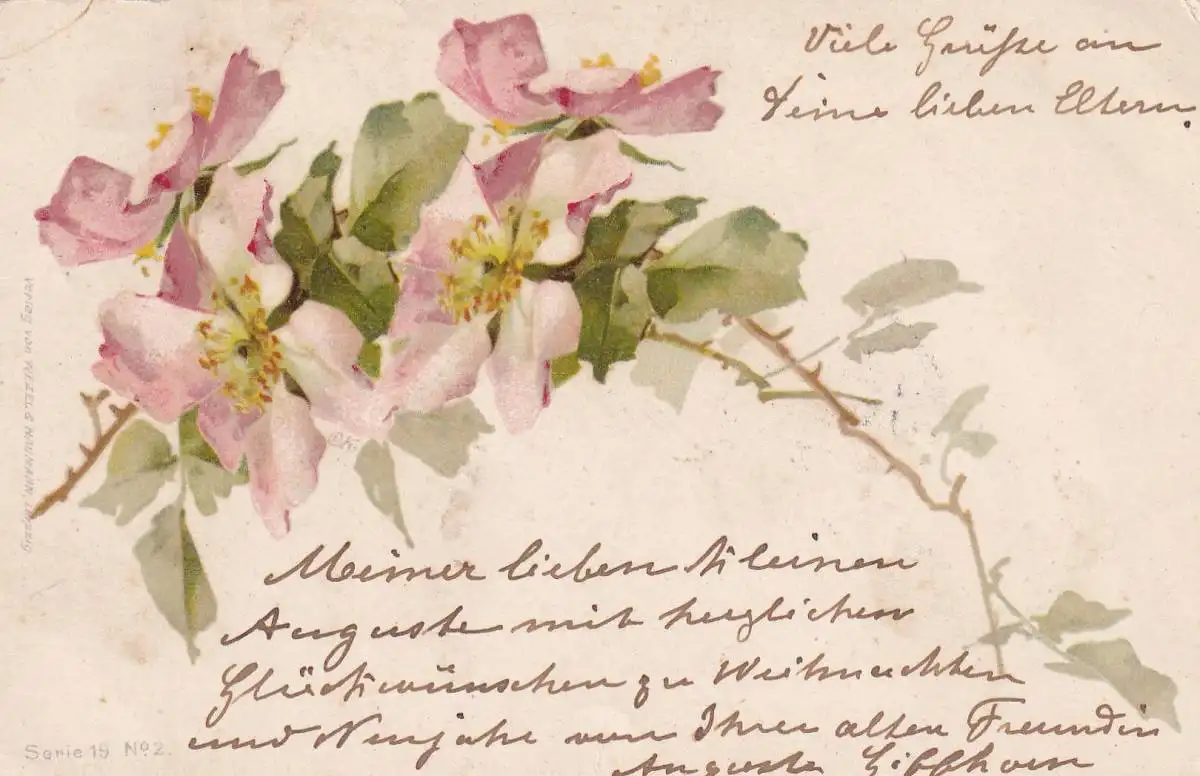 Viele Grüße an
Deine lieben Eltern.
Meiner lieben kleinen
Auguste mit herzlichen
Glückwünschen zu Weihnachten
und Neujahr von Ihrer alten Freundin
Auguste
Verlag von Wezel & Naumann, Leipzig
Serie 19 No 2.